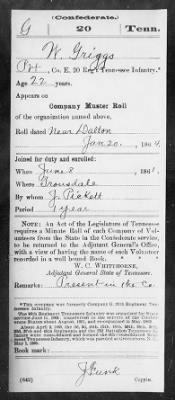 (Confederate.)
G 20 Tenn.
W. Griggs
Pvt, Co. E, 20 Reg't Tennessee Infantry.*
Age 22 years.
Appears on
Company Muster Roll
of the organization named above.
Roll dated Near Dalton
Jan. 20, 1864.
Joined for duty and enrolled:
When June 8, 1861.
Where
By whom J. Pickett
Period 1 year
NOTE: An Act of the Legislature of Tennessee
requires a Minute Roll of each Company of Vol-
unteers from the State in the Confederate service,
to be returned to the Adjutant General's Office,
with a view of having the name of each Volunteer
recorded in a well bound Book.
W. C. WHITTHORNE,
Adjutant General State of Tennessee.
Remarks: Present in the Co.
*This company was formerly Company G, 20th Regiment Tennessee
Infantry.
Book mark:
(642) Copyist.